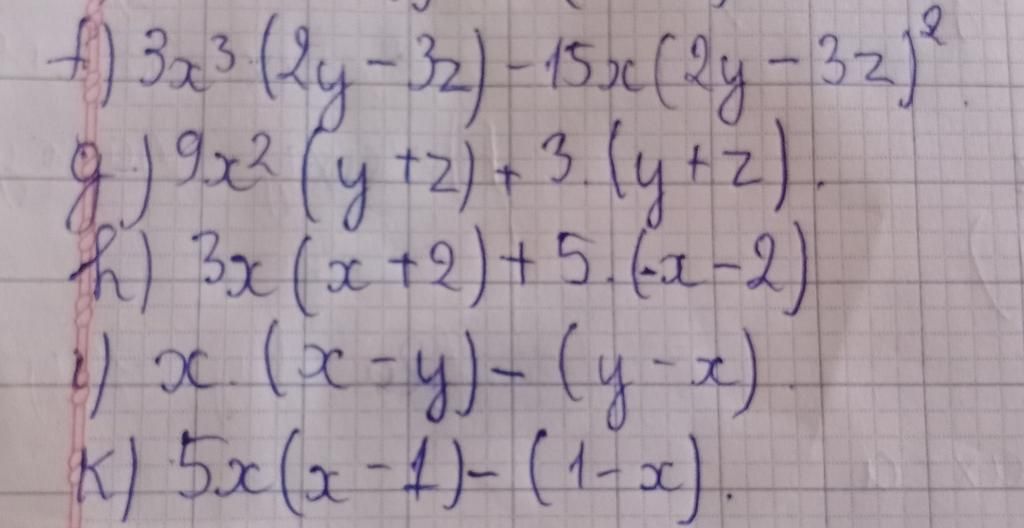 f) 3x³.(2y - 3z) - 15x(2y - 3z)²
g) 9x² (y + z) + 3.(y + z).
h) 3x(x + 2) + 5.(-x - 2)
i) x.(x - y) - (y - x)
k) 5x(x - 1) - (1 - x).